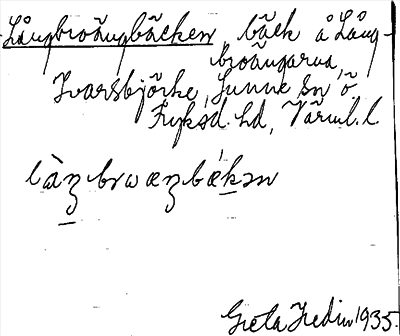 Långbroängbäcken bäck å Lång-
broängarna,
Ivarsbjörke, Sunne sn ö.
Fryksd. hd, Värml. l.
Greta Hedin 1935.